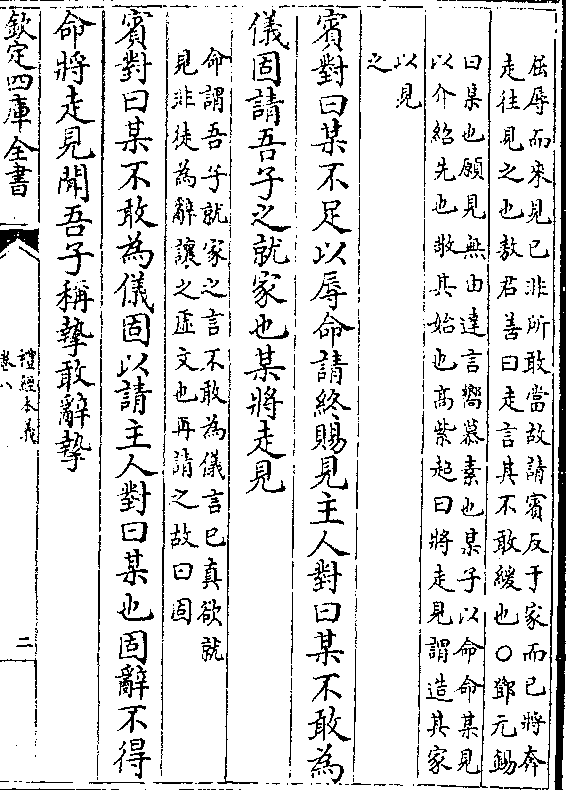 屈辱而來見已非所敢當故請賓反于家而已將奔
走往見之也敖君善曰走言其不敢緩也○鄧元錫
曰某也願見無由達言嚮慕素也某子以命命某見
以介紹先也敬其始也高紫超曰將走見謂造其家
以見
之
賓對曰某不足以辱命請終賜見主人對曰某不敢為
儀固請吾子之就家也某將走見
命謂吾子就家之言不敢為儀言已真欲就
見非徒為辭讓之虛文也再請之故曰固
賓對曰某不敢為儀固以請主人對曰某也固辭不得
命將走見聞吾子稱摯敢辭摯
欽定四庫全書
禮經本義
卷八
二